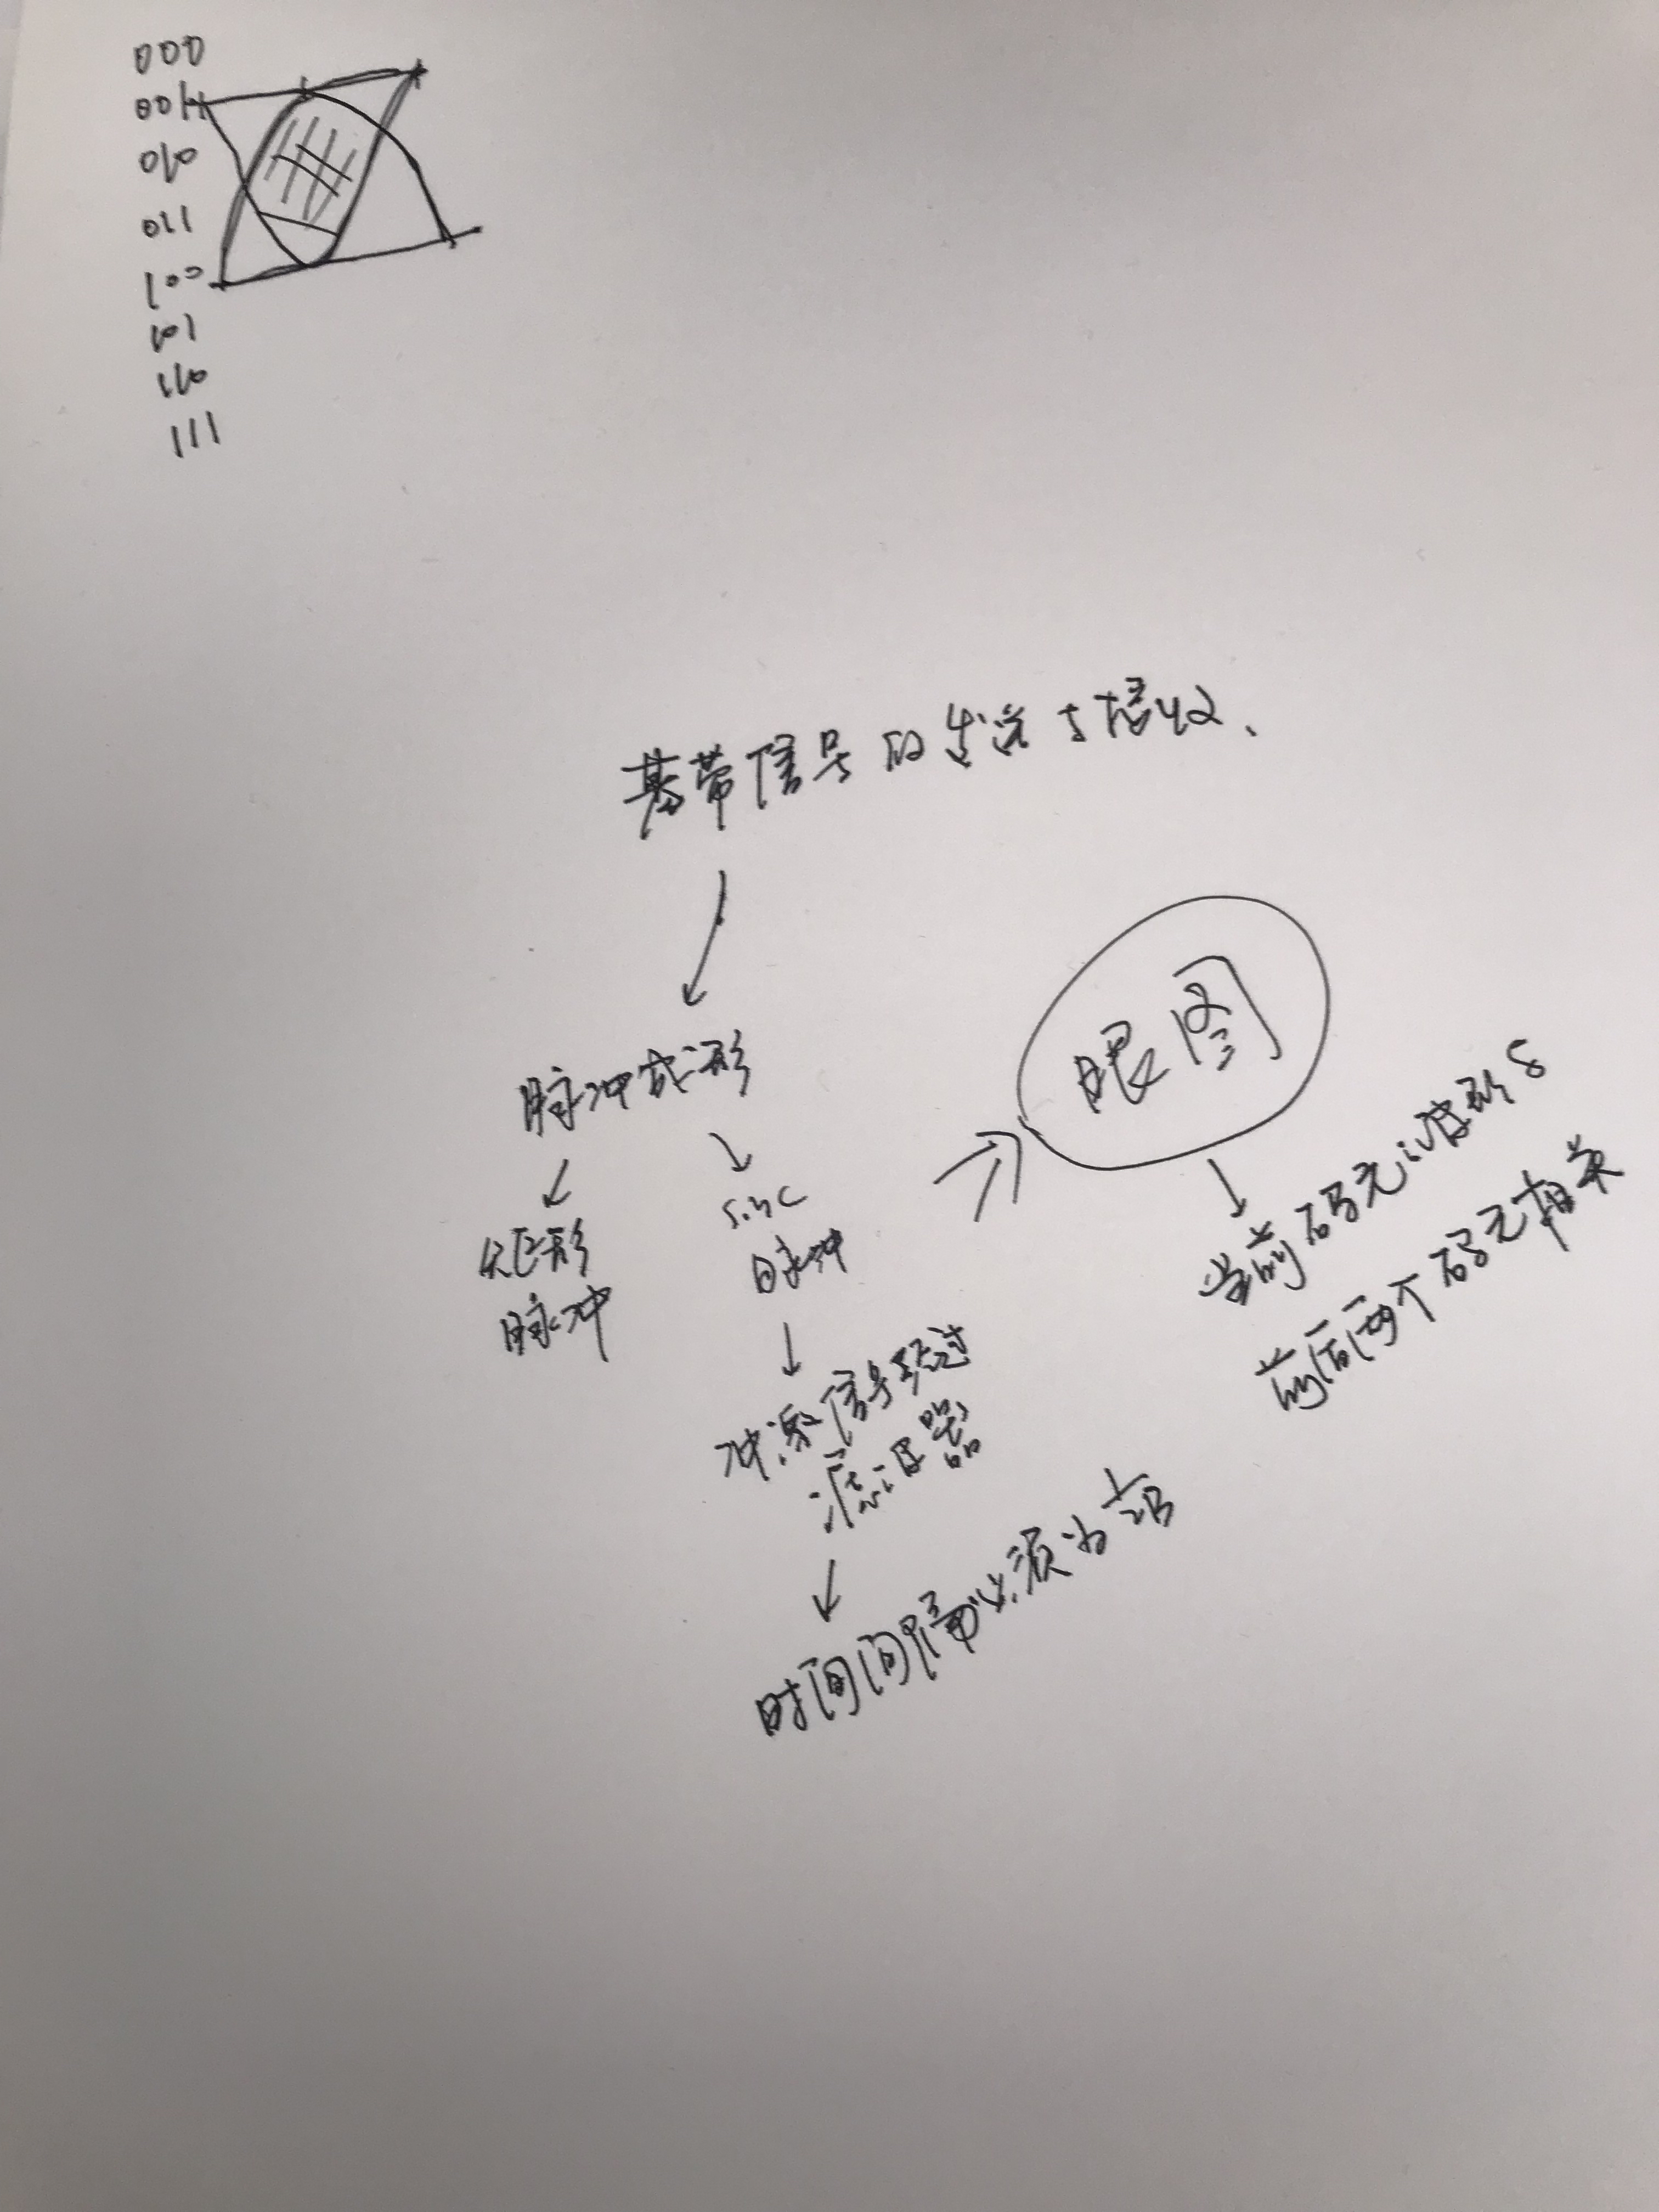 000
001
010
011
100
101
110
111
基带信号的发送与接收、
脉冲成形
矩形
脉冲
sinc
脉冲
冲激信号经过
滤波器
时间间隔必须为 1/2B
眼图
当前码元波形与
前后两个码元相关